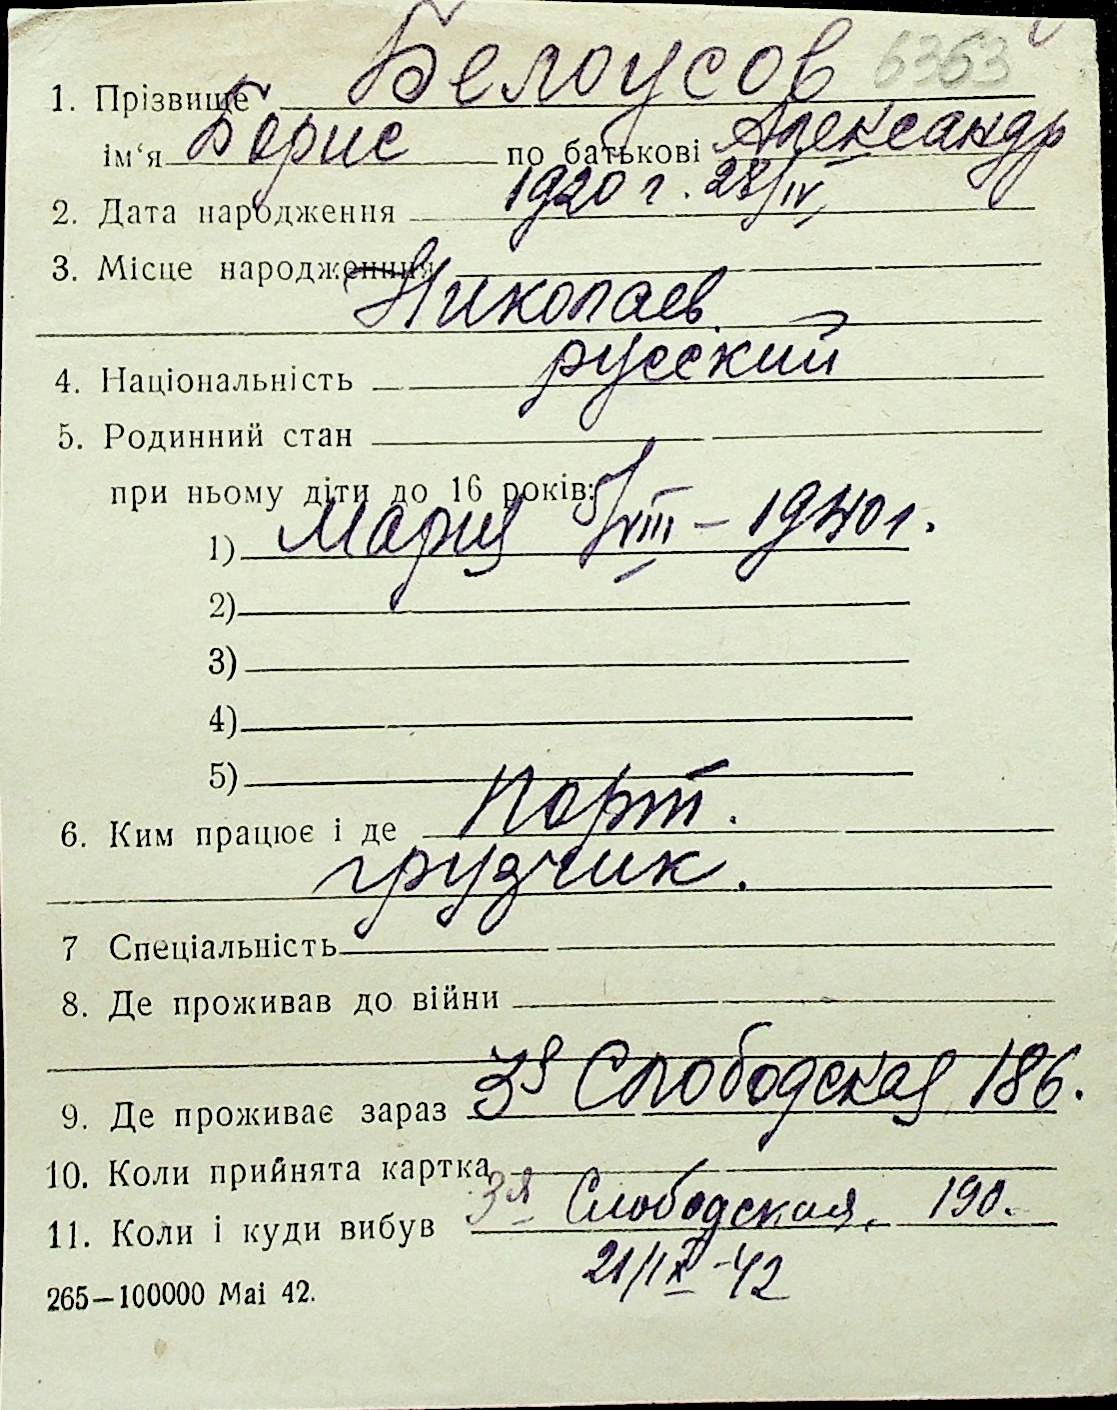 1. Прізвище Белоусов 6363
ім'я Борис по батькові Александр
2. Дата народження 1920 г. 28/IV
3. Місце народження
Николаев
4. Національність русский
5. Родинний стан
при ньому діти до 16 років:
1) Мария 5/VIII – 1940 г.
2)
3)
4)
5)
6. Ким працює і де Порт.
грузчик.
7 Спеціальність
8. Де проживав до війни
9. Де проживає зараз 3я Слободская 186.
10. Коли прийнята картка
11. Коли і куди вибув 3я Слободская, 190.
21/IX-42
265—100000 Mai 42.